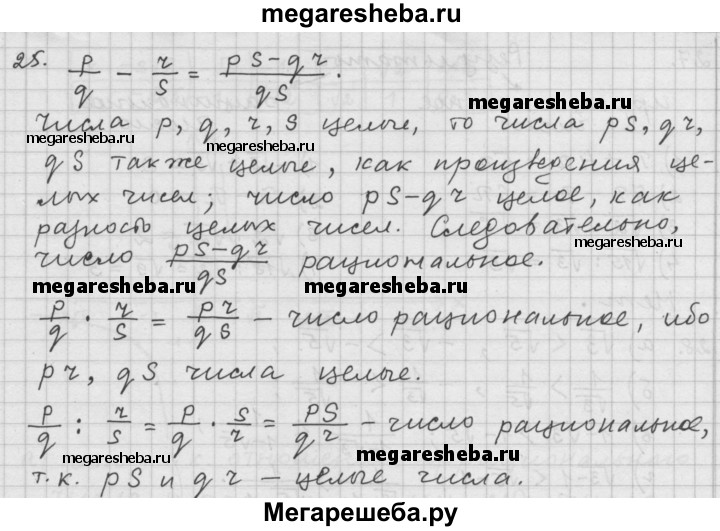 megaresheba.ru
25. p/q - r/s = ps-qr/qs.
megaresheba.ru
числа p, q, r, s целые, то числа ps, qr,
megaresheba.ru
megaresheba.ru
qs также целые, как произведения це-
лых чисел; число ps-qr целое, как
разность целых чисел. Следовательно,
megaresheba.ru
число ps-qr/qs рациональное.
megaresheba.ru megaresheba.ru
p/q · r/s = pr/qs - число рациональное, ибо
pr, qs числа целые.
p/q : r/s = p/q · s/r = ps/qr - число рациональное,
megaresheba.ru megaresheba.ru
т.к. ps и qr - целые числа.
Мегарешеба.ру